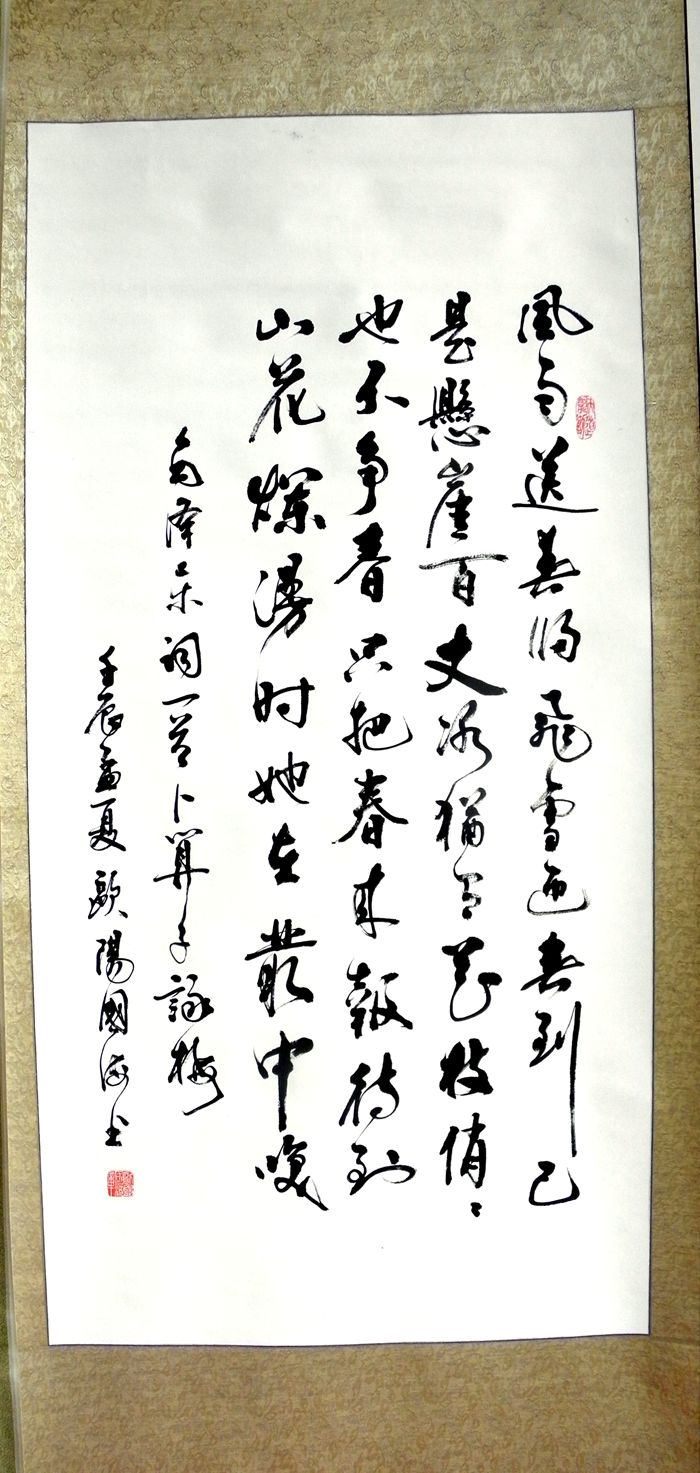 風雨送春归飛雪迎春到已
是懸崖百丈冰猶有花枝俏〻
也不争春只把春来報待到
山花爛漫时她在叢中咲
毛泽东词一首卜算子詠梅
壬辰孟夏歐陽國海书